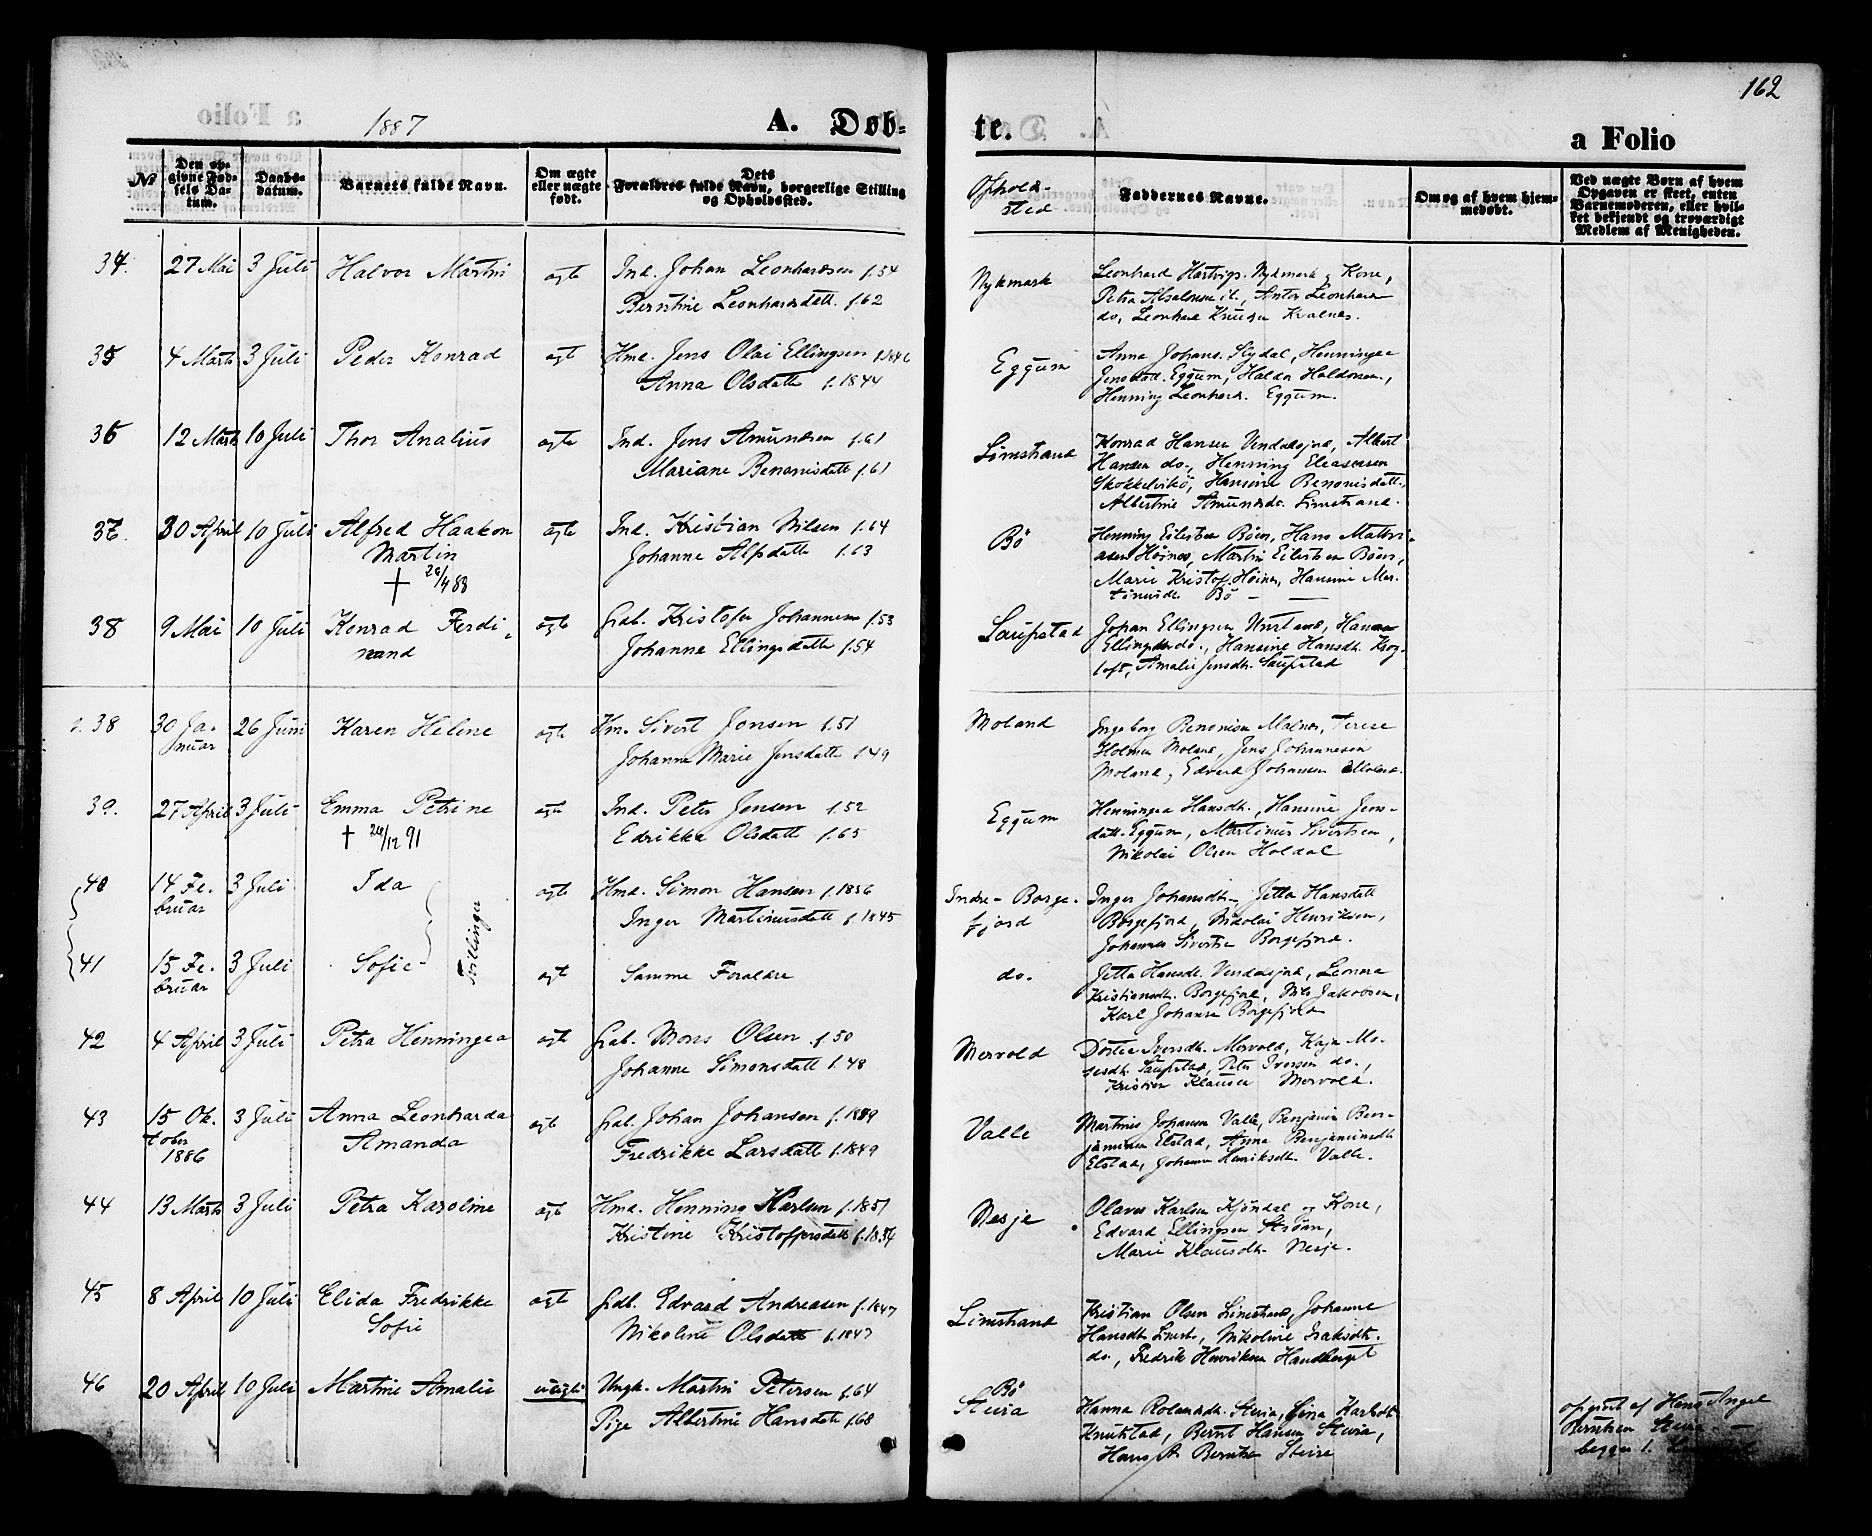 162
1887 A. Døb-
te. a Folio
№
Den op-
givne Fød-
sels Da-
tum.
Daabs-
datum.
Barnets fulde Navn.
Om ægte
eller uægte
født.
Dets
Forældres fulde Navn, borgerlige Stilling
og Opholdssted.
Ophold-
sted
Faddernes Navne.
Om og af hvem hjem-
medøbt.
Ved uægte Børn af hvem
Opgaven er skeet, enten
Barnemoderen, eller hvil-
ket bekjendt og troværdigt
Medlem af Menigheden.
34. 27 Mai 3 Juli Halvor Martin ægte Ind. Johan Leonhardsen f.54
Berntine Leonhardsdatt. f.62
Nykmark
Leonhard Hartvigs. Nykmark & Kone,
Petra Absalonsen ib., Anton Leonhard
do, Leonhard Knudsen Kvalnes.
35 4 Marts 3 Juli Peder Konrad ægte Hmd. Jens Olai Ellingsen f.1846
Anna Olsdatt f.1844
Eggum
Anna Johans. Slydal, Henningea
Jensdatt. Eggum, Haldor Haldorsen.,
Henning Leonhard. Eggum.
36 12 Marts 10 Juli Thor Analius ægte Ind. Jens Amundsen f.61
Mariane Benonisdatt f.61
Limstrand
Konrad Hansen Vendalsjord, Albert
Hansen do., Henning Eleasersen
Skokkelvik, Hansine Benonisdatt.,
Albertine Amundsdt. Limstrand.
37. 30 April 10 Juli Alfred Haakon
Martin
† 26/4 88
ægte Ind. Kristian Nilsen f.64
Johanne Alfsdatt f.63
Bö
Henning Eilertsen Böen, Hans Mathi-
asen Höines, Martin Eilertsen Böen,
Marie Kristof. Höines, Hansine Mor-
tinusdt. Bö -
38 9 Mai 10 Juli Konrad Ferdi-
nand
ægte Gdb. Kristofer Johannesen f.53
Johanne Ellingsdatt f.54
Saupstad
Johan Ellingsen Unstad, Hanna
Ellingsdt. do., Hansine Hansdt. Krog-
toft, Amalie Jensdt. Saupstad
38 30 Ja-
nuar
26 Juni Karen Helene ægte Hm. Sivert Jonsen f.51
Johanna Marie Jensdatt f.49
Moland
Ingeborg Benonisen Malnes, Terese
Holmen Moland, Jens Johannesen
Moland, Edvard Johansen Moland.
39. 27 April 3 Juli Emma Petrine
† 24/12 91
ægte Ind. Peter Jensen f.52
Edrikke Olsdatt f.65
Eggum
Henningea Hansdt., Hansine Jens-
datt. Eggum, Martinus Sivertsen,
Nikolai Olsen Holdal
40 14 Fe-
bruar
3 Juli Ida ægte Hmd. Simon Hansen f.1856
Inger Martinusdatt f.1845
Tvillinger
Indre-Borge-
fjord
Inger Johansdt. Jetta Hansdatt
Borgefjord, Nikolai Henriksen,
Johannes Sivertsen Borgefjord.
41 15 Fe-
bruar
3 Juli Sofie ægte Samme Forældre
do.
Jetta Hansdt. Vendalsjord, Leonora
Kristiansdt. Borgefjord, Nils Jakobsen,
Karl Johansen Borgefjord
42 4 April 3 Juli Petra Henningea ægte Gdb. Mons Olsen f.50
Johanne Simonsdatt f.48
Mervold
Dortea Iversdt. Mervold, Kaja Mo-
sesdt. Saupstad, Peter Iversen do.,
Kristian Klausen Mervold.
43 15 Ok-
tober
1886
3 Juli Anna Leonharda
Amanda
ægte Gdb. Johan Johansen f.1849
Fredrikke Larsdatt f.1849
Valle
Martines Johansen Valle, Benjamin Ben-
jaminsen Elstad, Anna Benjaminsdt
Elstad, Johanna Henriksdt. Valle.
44 13 Marts 3 Juli Petra Karoline ægte Hmd. Henning Karlsen f.1851
Kristine Kristoffersdatt f.1854
Nesje
Olaves Karlsen Kjöndal og Kone,
Edvard Ellingsen Ström,
Marie Klausdt. Nesje.
45 8 April 10 Juli Elida Fredrikke
Sofie
ægte Gdb. Edvard Andreasen f.1847
Nikoline Olsdatt f.1847
Limstrand
Kristian Olsen Limstrand, Johanne
Hansdt Limst., Nikoline Isaksdt.
do, Fredrik Henriksen Handberget
46 20 April 10 Juli Martine Amalie uægte Ungk. Martin Petersen f.64
Pige Albertine Hansdatt f.68
Bö
Steira
Hanna Rolandsdt. Steira, Lina Karlsdt.
Knutstad, Bernt Hansen Steira,
Hans A. Berntsen Steira
opgivet af Hans Angel
Berntsen Steira -
begge 1.